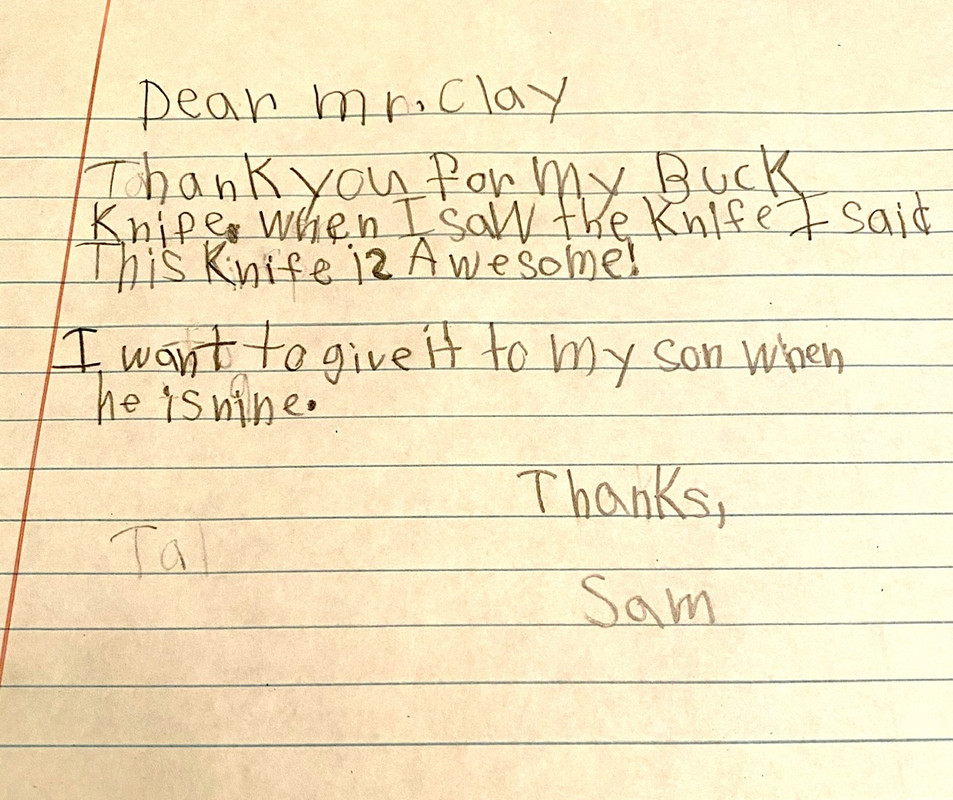 Dear mr. Clay
Thank you for my Buck
Knife. when I saw the Knife I said
This Knife iz Awesome!
I want to give it to my son when
he is nine.
Thanks,
Tal
Sam